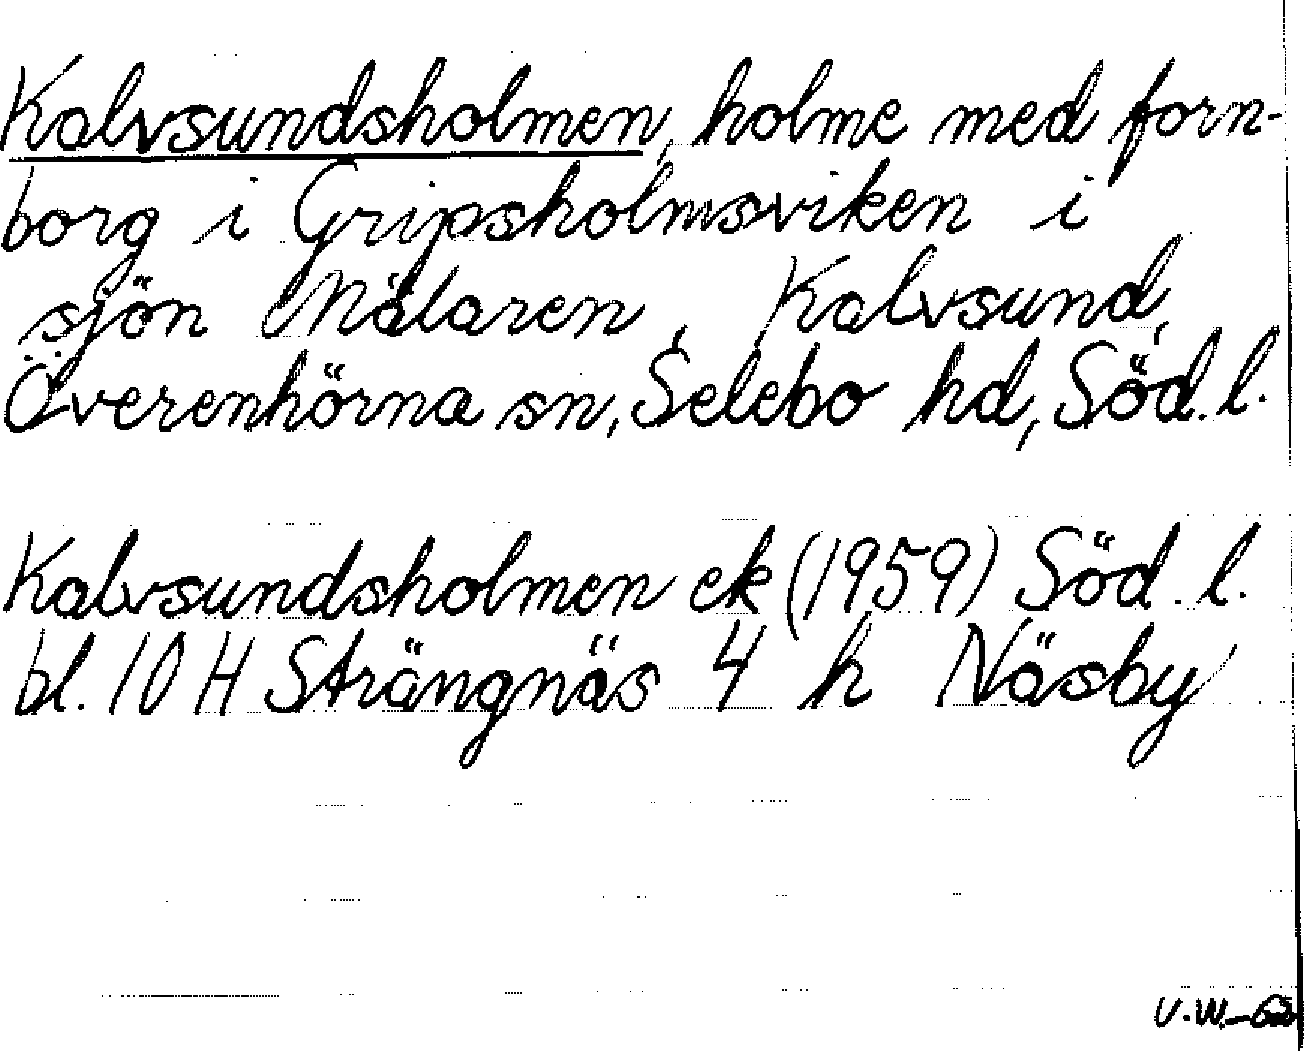 Kalvsundsholmen, holme med forn-
borg i Gripsholmsviken i
sjön Mälaren, Kalvsund,
Överenhörna sn, Selebo hd, Söd. l.
Kalvsundsholmen ek (1959) Söd. l.
bl. 10 H Strängnäs 4 h Näsby
V.W.-